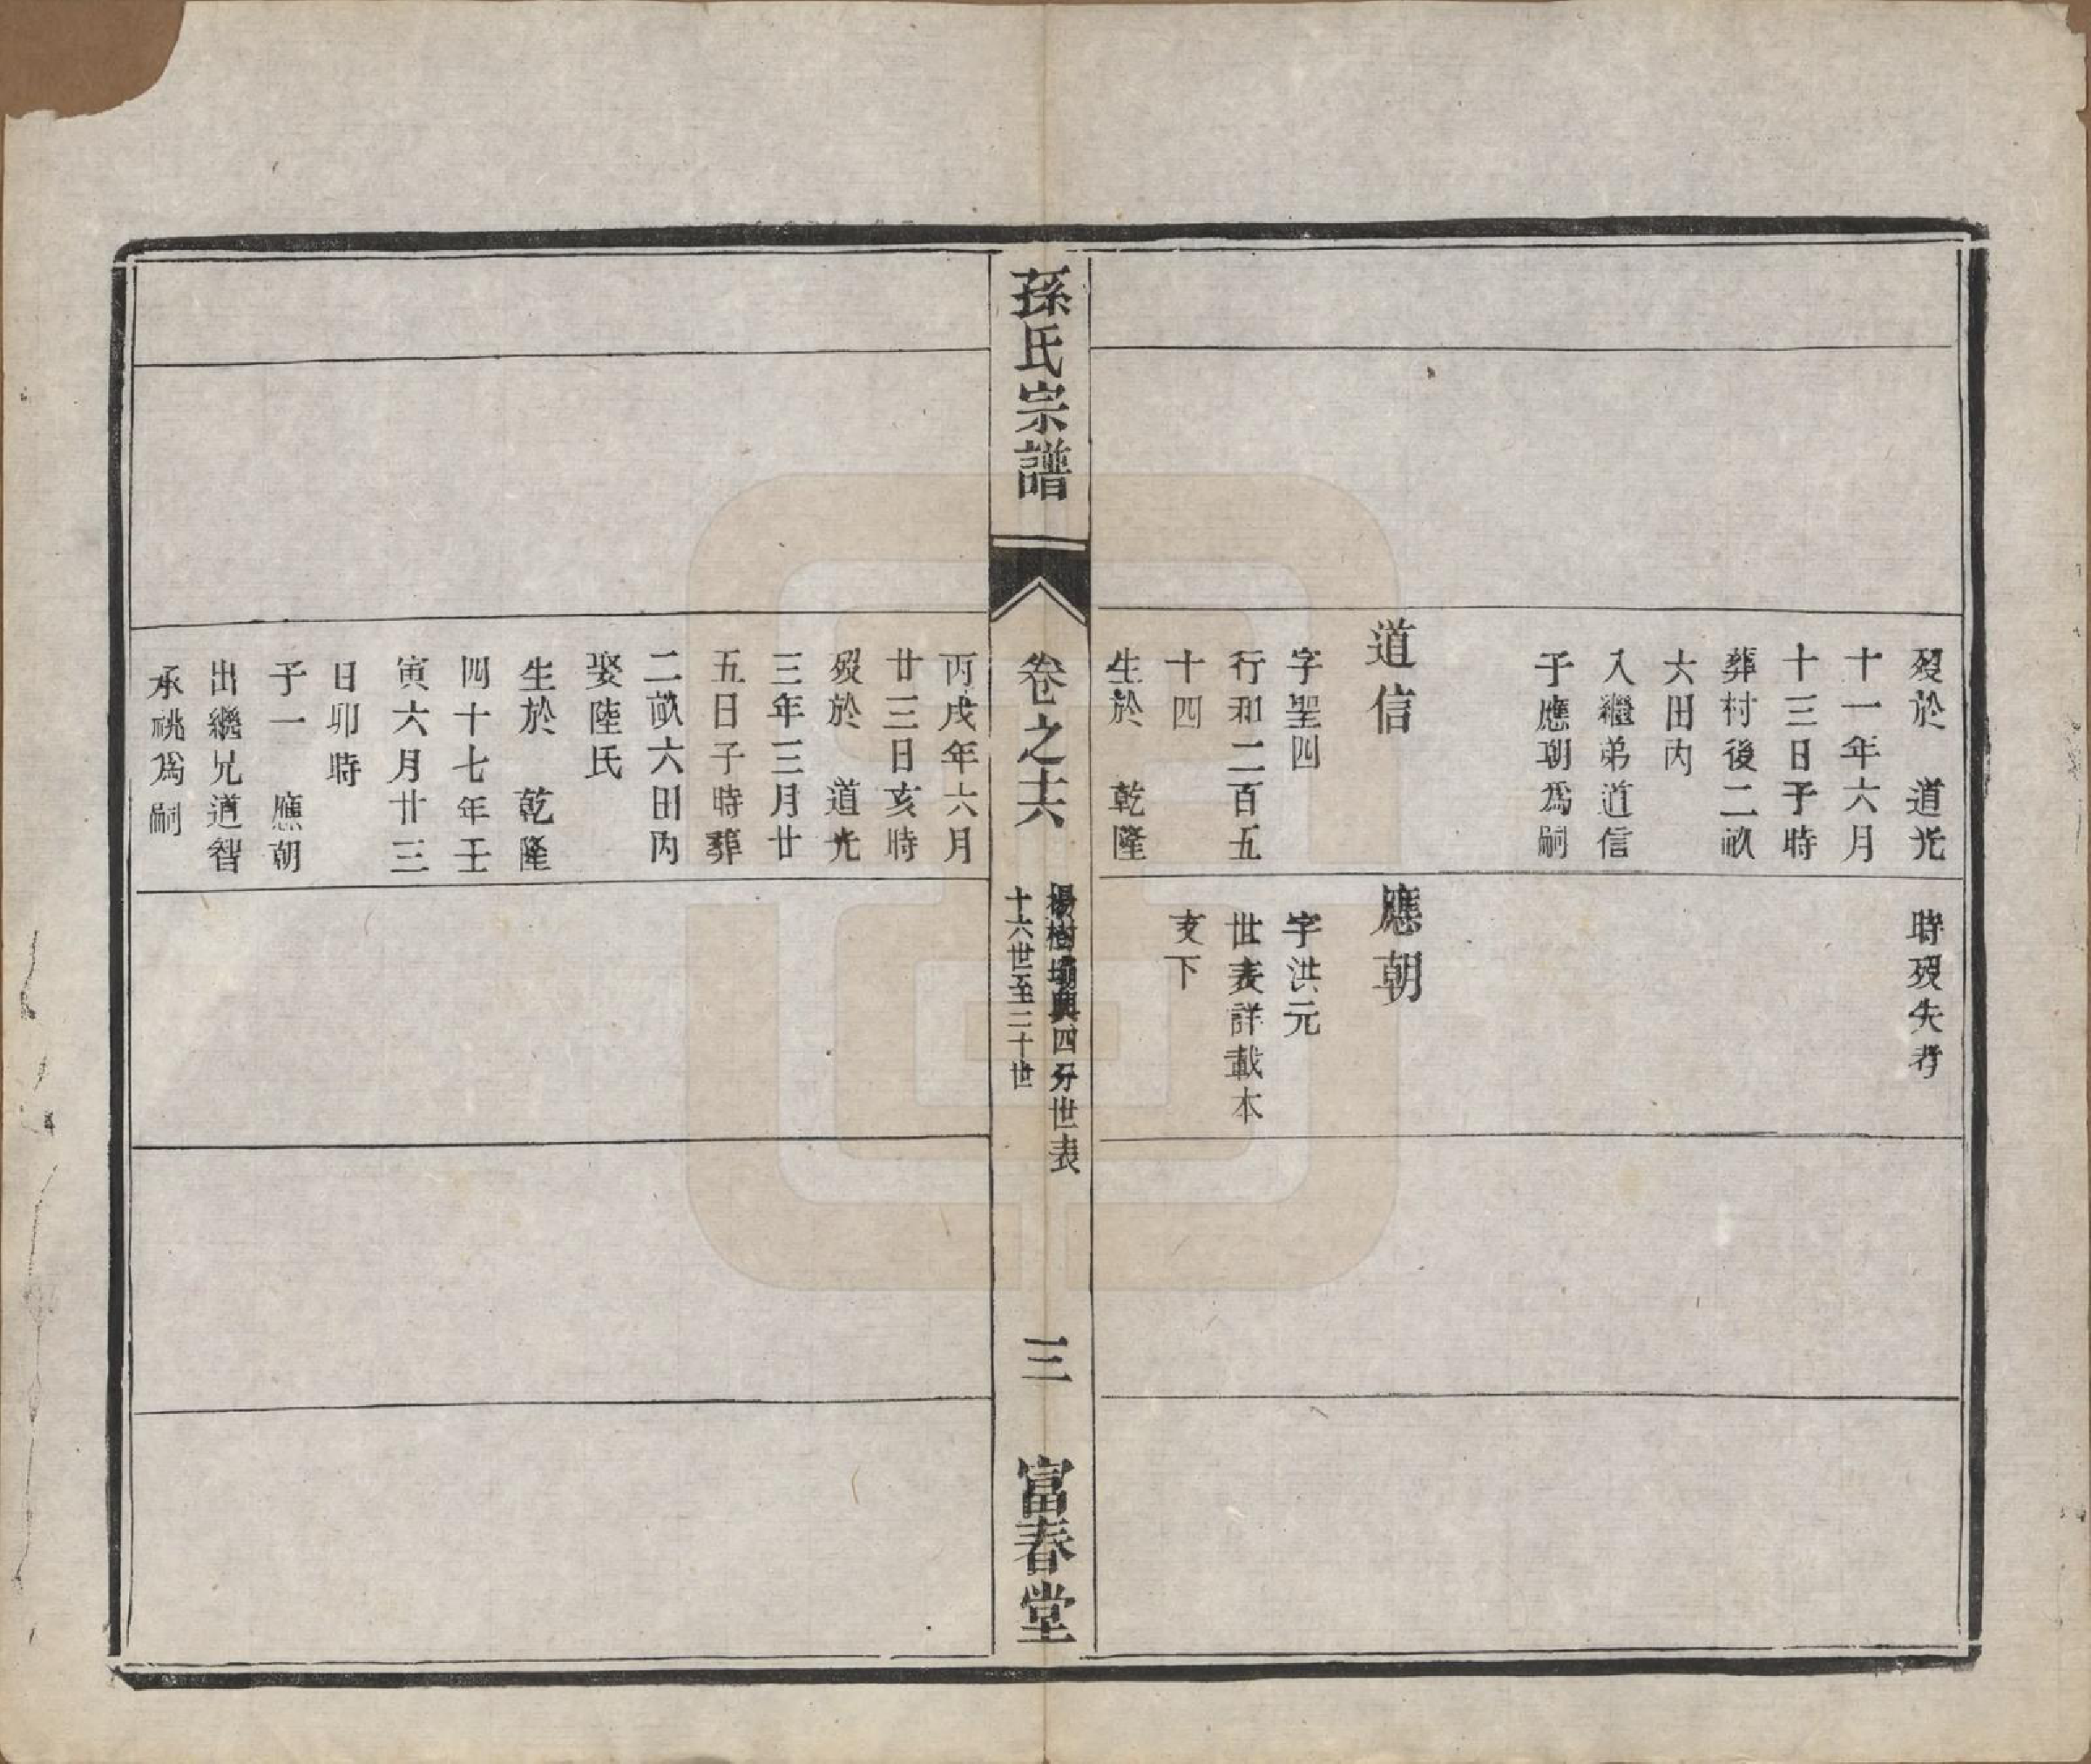 歿於　道光
十一年六月
十三日子時
葬村後二畝
六田內
入繼弟道信
子應朝爲嗣
道信
字聖四
行和二百五
十四
生於　乾隆
時歿失考
應朝
字洪元
世表詳載本
支下
孫氏宗譜
卷之十六
楊樹壩興四分世表
十六世至二十世
三
富春堂
丙戌年六月
廿三日亥時
歿於　道光
三年三月廿
五日子時葬
二畝六田內
娶陸氏
生於　乾隆
四十七年壬
寅六月廿三
日卯時
子一　應朝
出繼兄道智
承祧爲嗣